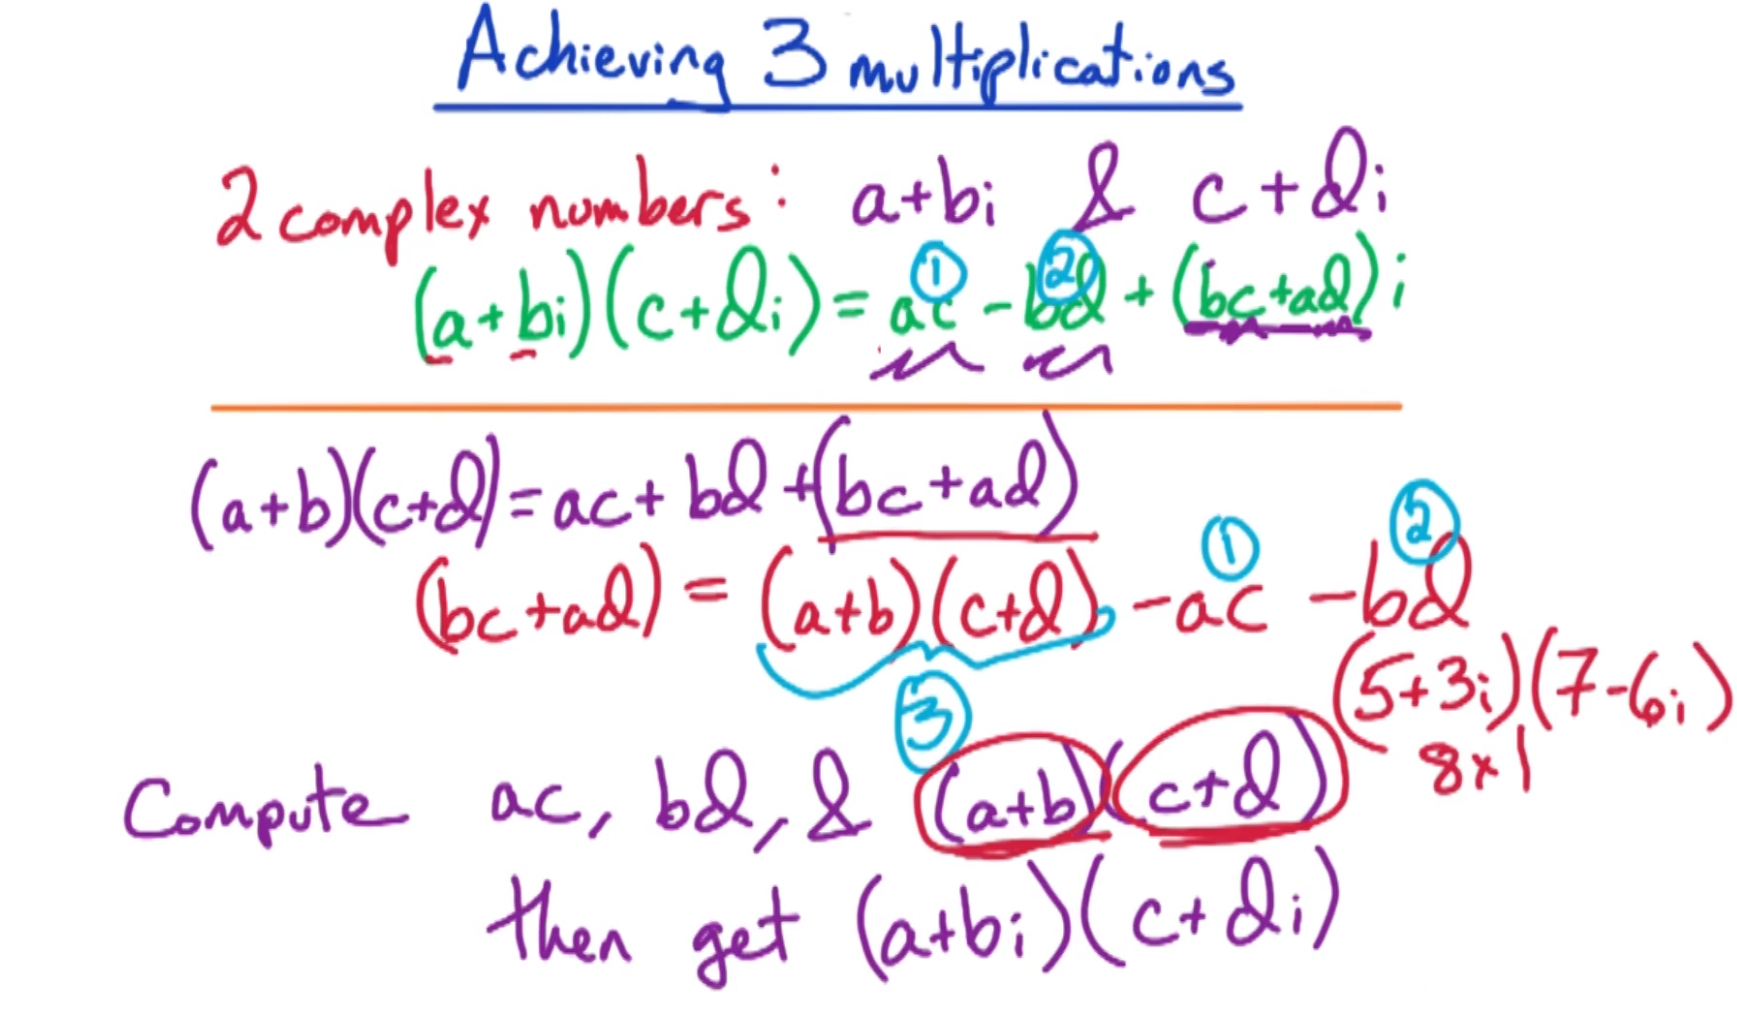 Achieving 3 multiplications
2 complex numbers: a+bi & c+di
(a+bi)(c+di) = ac - bd + (bc+ad)i
① ②
(a+b)(c+d) = ac + bd + (bc+ad)
(bc+ad) = (a+b)(c+d) - ac - bd
① ②
③
(5+3i)(7-6i)
8x1
Compute ac, bd, & (a+b)(c+d)
then get (a+bi)(c+di)